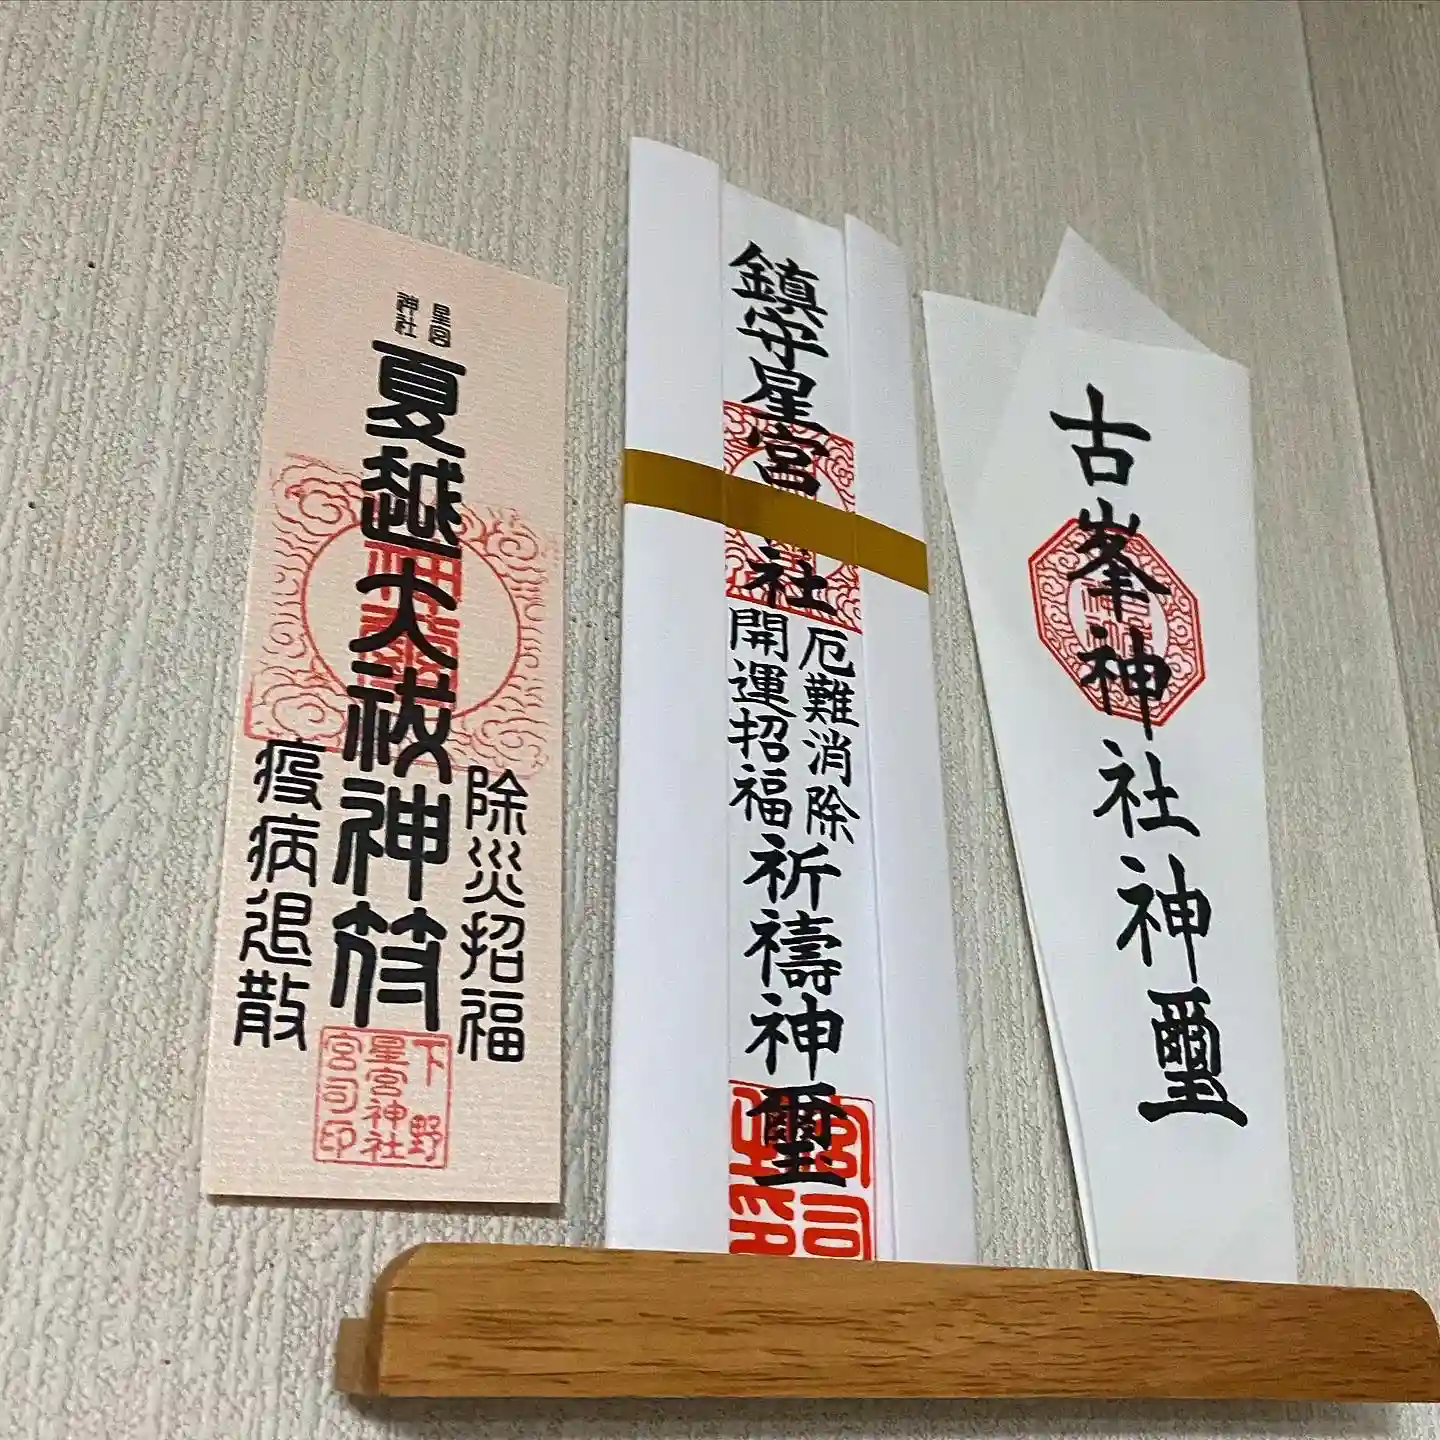 星宮
神社
夏越大祓神符
除災招福
疫病退散
下野
星宮神社
宮司印
鎮守星宮
社
厄難消除
開運招福
祈禱神璽
宮司
古峯神社神璽